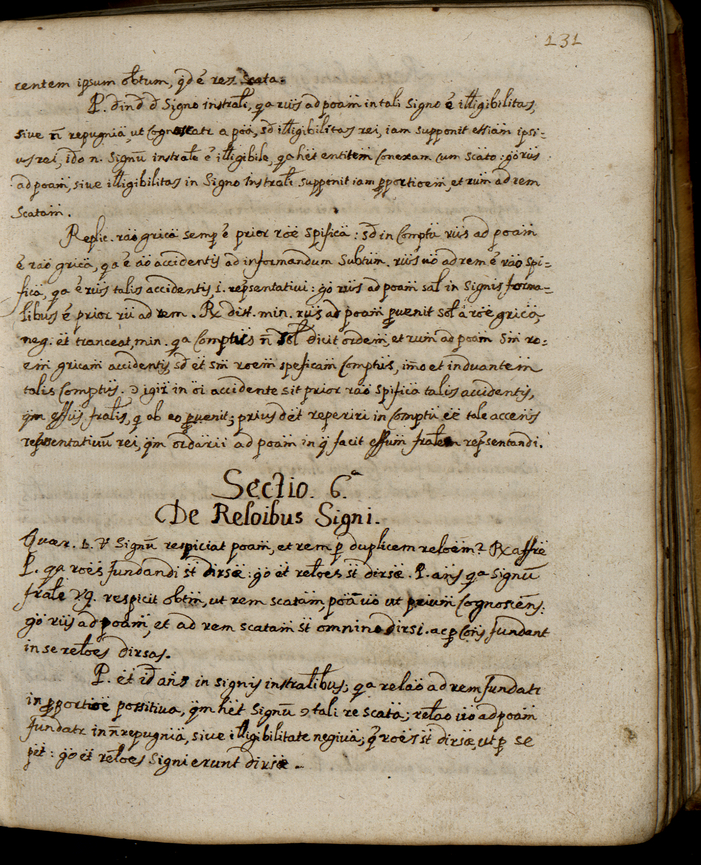 131
rentem ipsum obtum, qd ē rez scata.
P. dind d signo instrali, qa rūs ad poam in tali signo ē illigibilitas,
sive n̄ repugnia, ut cognoscatr a poa, sd illigibilitas rei, iam supponit etiam ipsi-
us rei, ido n. signū instrale ē illigibile, qa hēt entitem conexam cum scato: go rūs
ad poam, sive illigibilitas in signo instrali supponit iam pportioem, et rum ad rem
scatam.
Replic. rao grica semp ē prior roe spifica: sd in comptu rūs ad poam
ē rao grica, qa ē ao accidentis ad informandum subtum. rūs uo ad rem ē rao spi-
fica, qa ē rūs talis accidentis, i. repsentativi: go rūs ad poam sal in signis forma-
libus ē prior rū ad rem. Rx dist. min. rūs ad poam pvenit sol a roe grica,
neg. et tranceat, min. qa comptus n̄ sol dicit ordem, et rum ad poam sm ro-
em gricam accidentis, sd et sm roem speficam comptus, imo et induantem
talis comptus. igir in oi accidente sit prior rao spifica talis accidentis,
qm effus fralis, q ab eo pvenit; prius det reperiri in comptu ēē tale accens
repsentativū rei, qm ordarii ad poam in q facit effum fralem repsentandi.
Sectio. 6.a
De Reloibus Signi.
Quær. b. V signū respiciat poam, et rem p duplicem reloem? Rx affre
P. qa roes fundandi st dirsæ: go et reloes st dirsæ. P. ans qa signū
frale vg. respicit obtm, ut rem scatam, poa uo ut prium cognoscens:
go rūs ad poam, et ad rem scatam st omnino dirsi. ac p cons fundant
in se reloes dirsas.
P. et id ans in signis instralibus; qa relao ad rem fundatr
in pportioe possitiva, qm hēt signū tali re scata; relao uo ad poam
fundatr in n̄ repugnia, sive illigibilitate negiva; q roes st dirsæ, ut p se
pet: go et reloes signi erunt dirsæ.